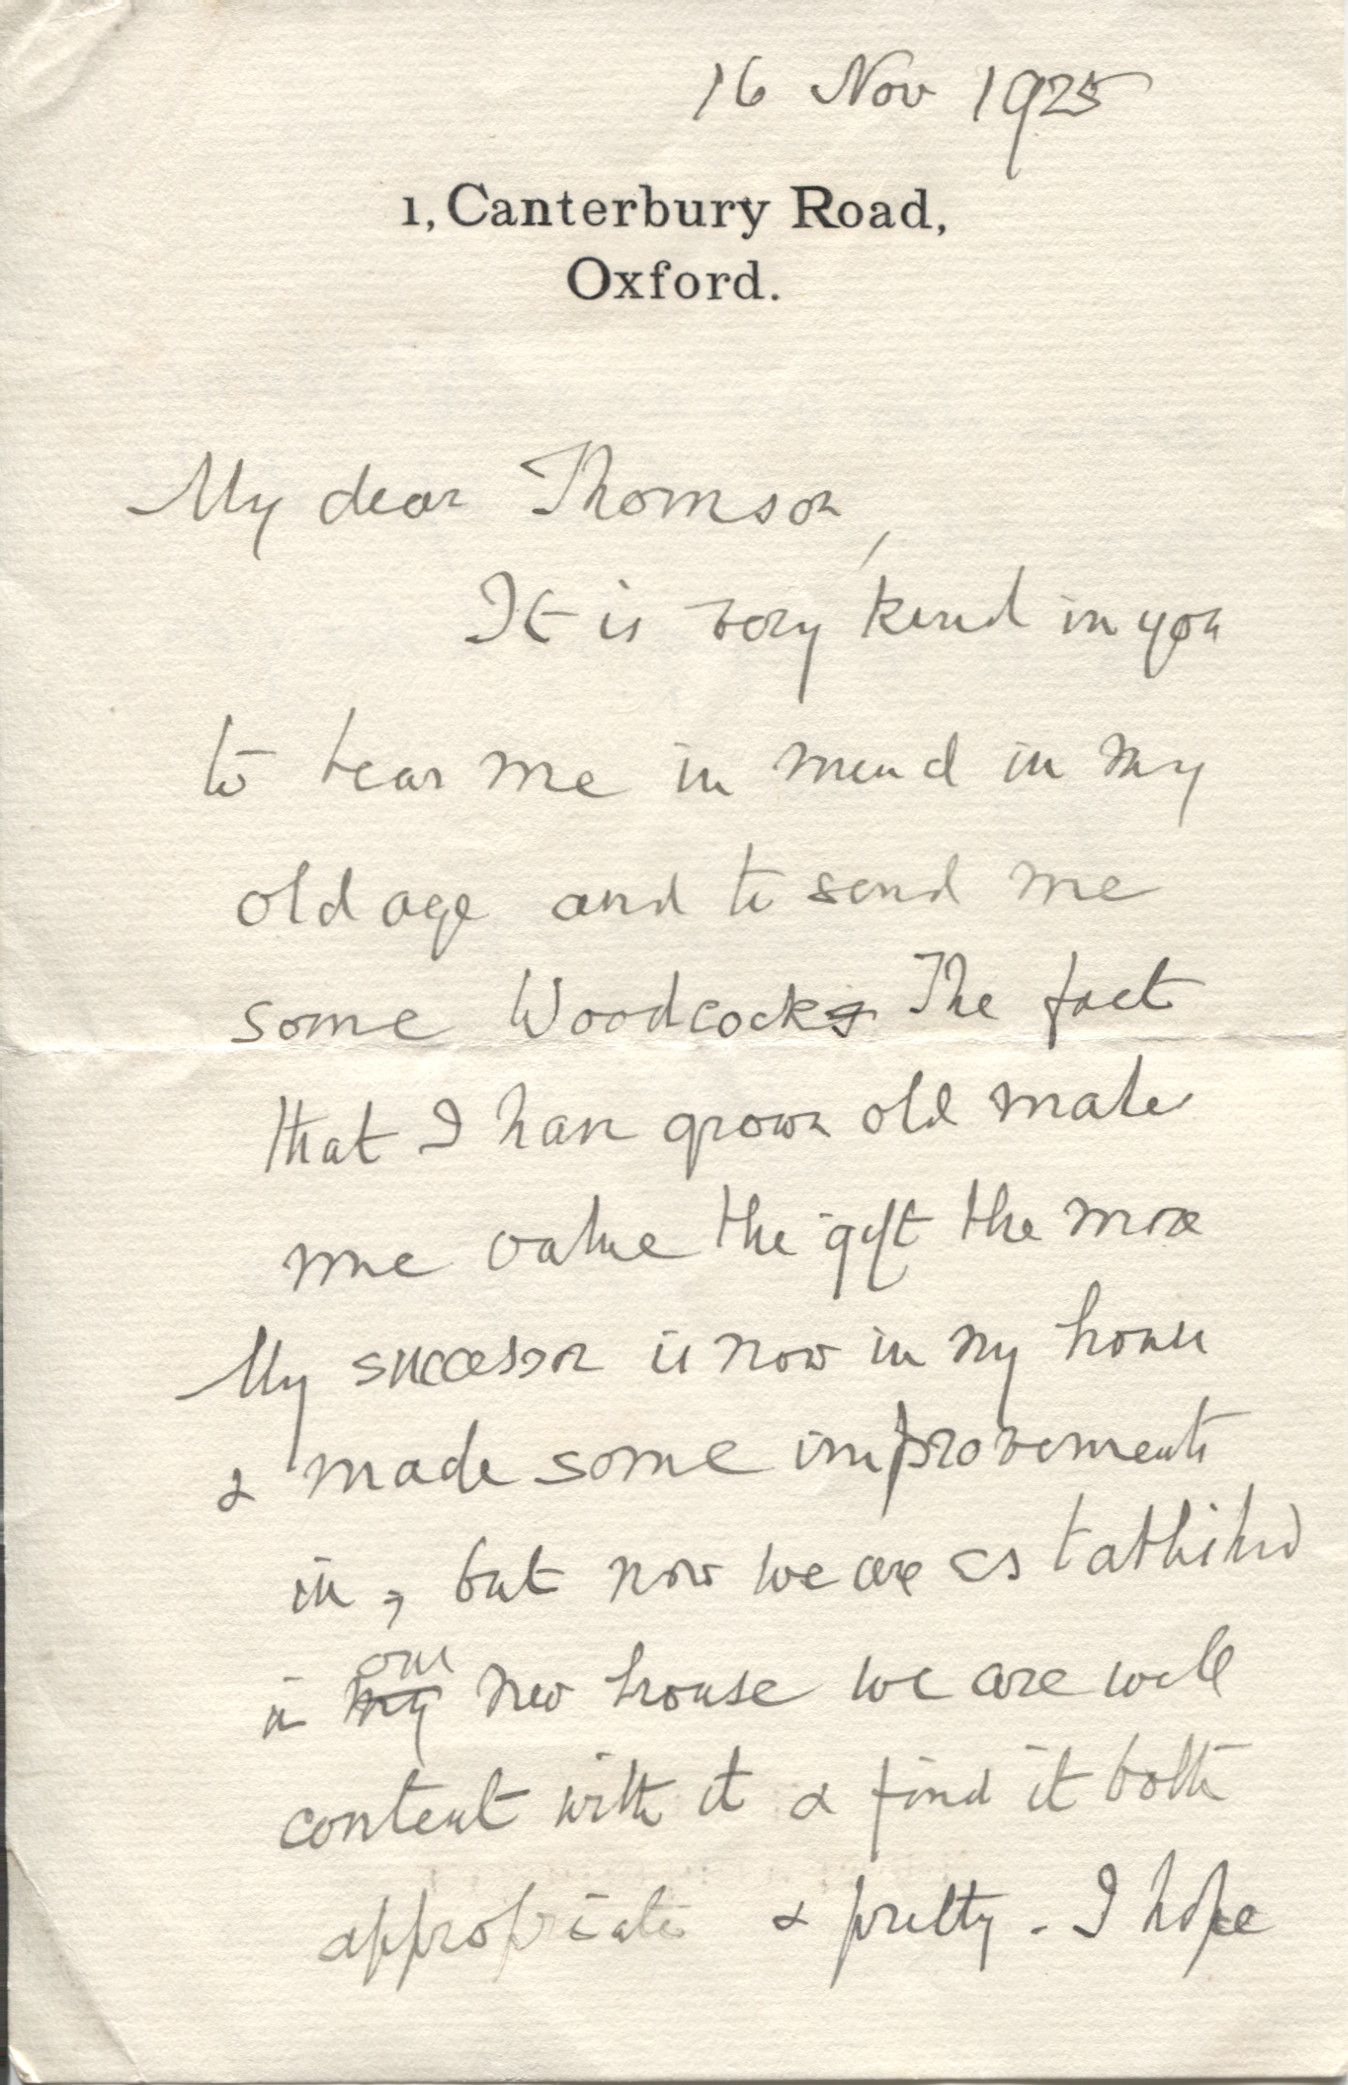 16 Nov 1925
1, Canterbury Road,
Oxford.
My dear Thomson,
It is very kind in you
to bear me in mind in my
old age and to send me
some Woodcocks The fact
that I have grown old makes
me value the gift the more
My successor is now in my house
& made some improvements
in, but now we are established
in our new house we are well
content with it & find it both
appropriate & pretty. I hope